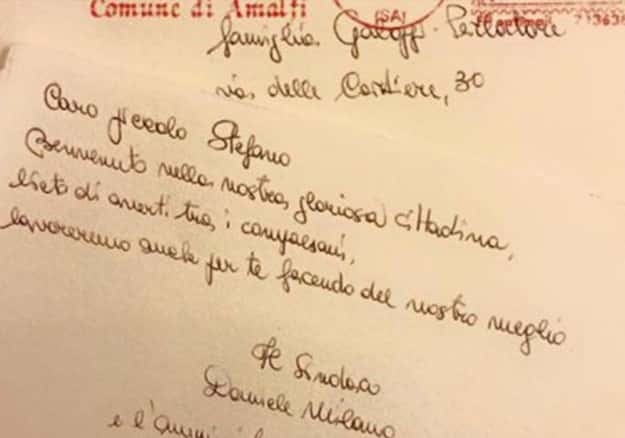 Comune di Amalfi
(SA)
famiglia
via delle Cartiere, 30
Caro piccolo Stefano
Benvenuto nella nostra gloriosa cittadina,
lieti di averti tra i compaesani,
lavoreremo anche per te facendo del nostro meglio
Il Sindaco
Daniele Milano
e l'ammi